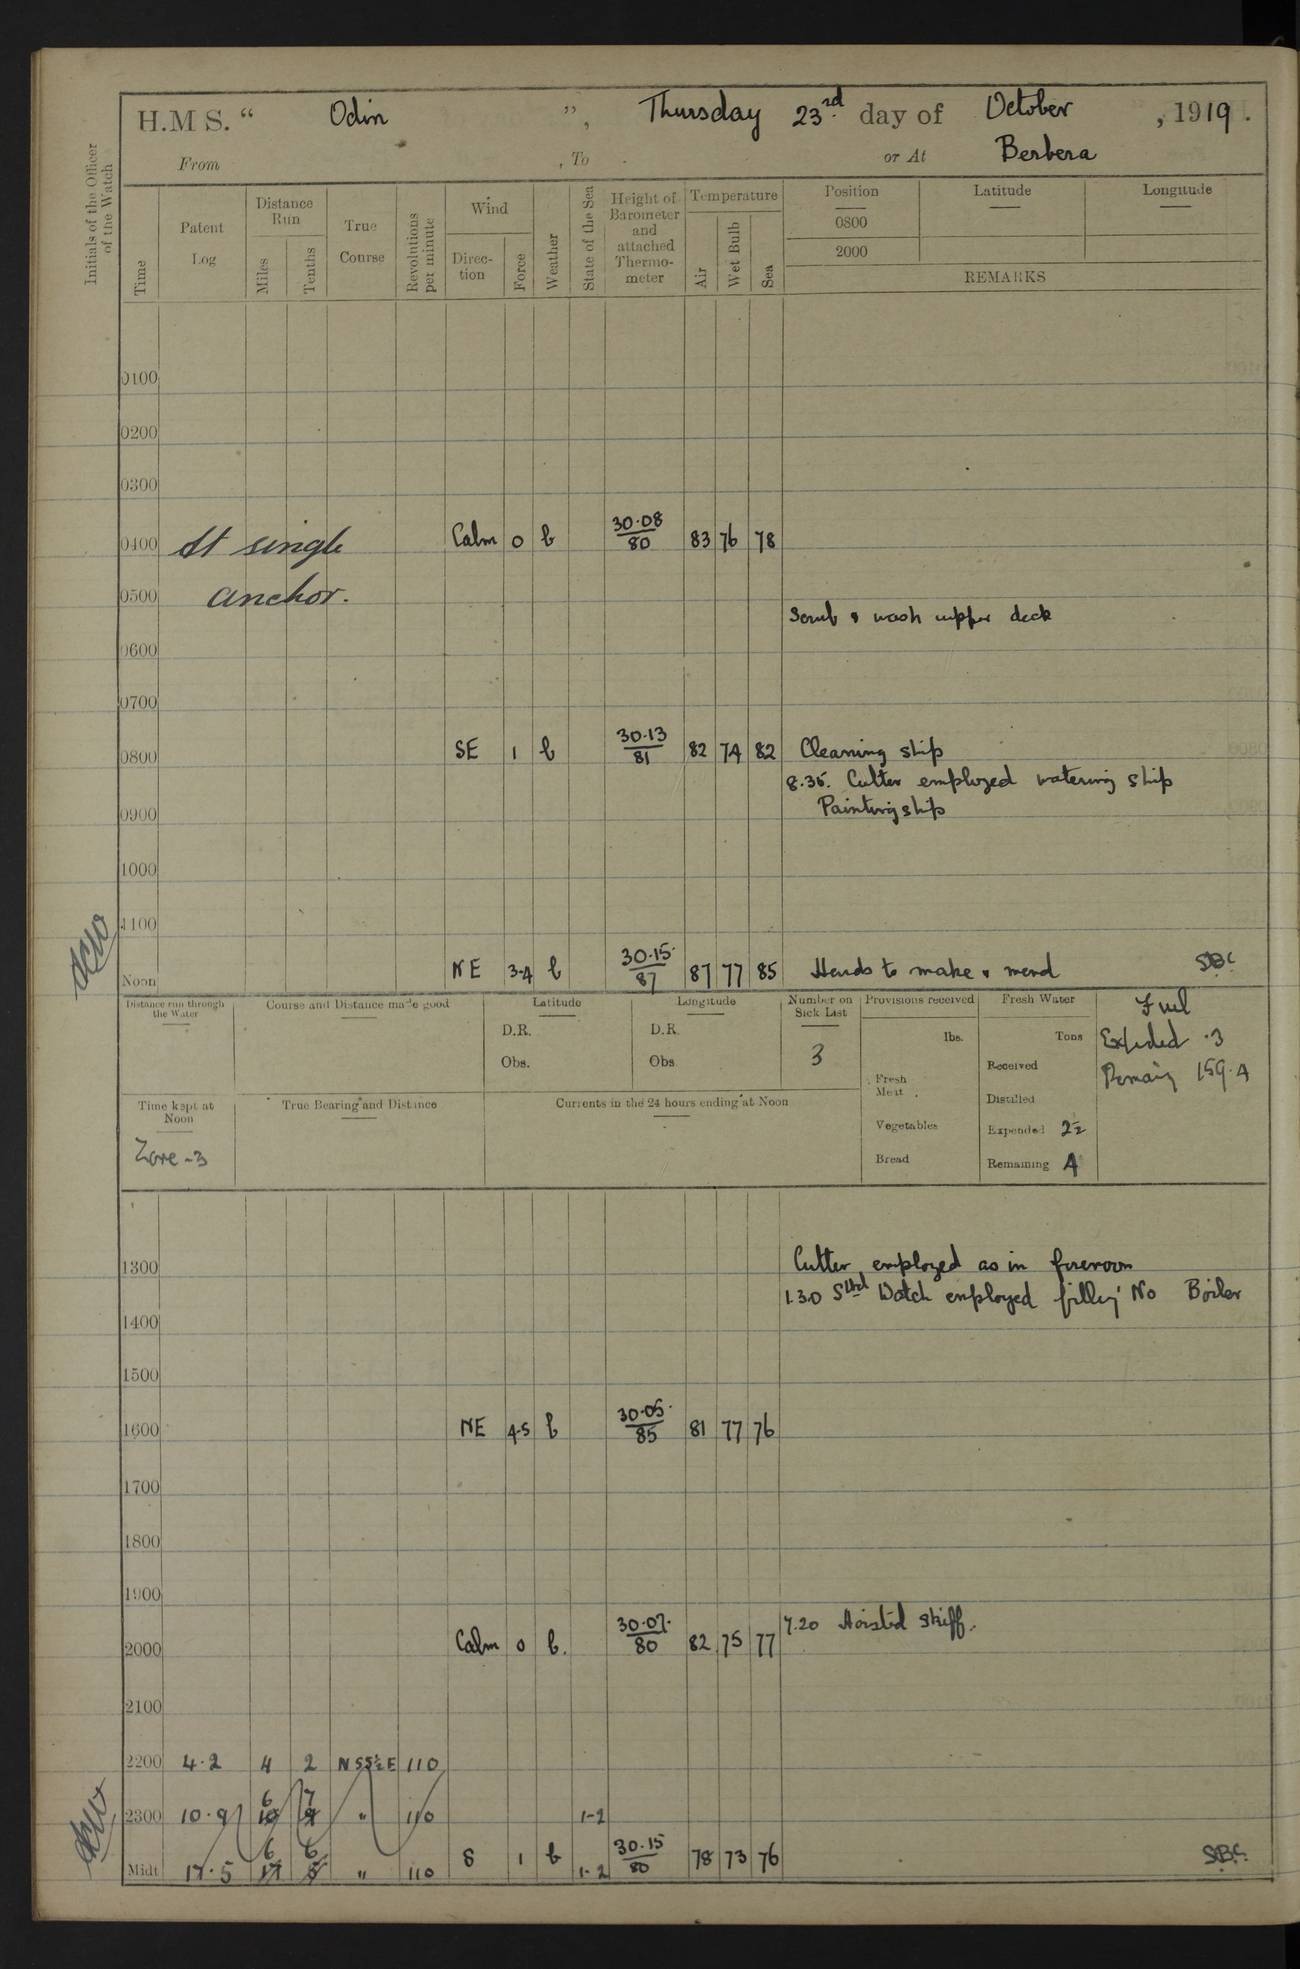 H.M S. “ Odin ”, Thursday 23rd day of October , 1919.
From , To or At Berbera
Initials of the Officer of the Watch
Time Patent Log Distance Run Miles Tenths True Course Revolutions per minute Wind Direction Force Weather State of the Sea Height of Barometer and attached Thermometer Temperature Air Wet Bulb Sea Position Latitude Longitude
0800
2000
REMARKS
0100
0200
0300
0400 At single Calm 0 b 30.08/80 83 76 78
0500 anchor.
Scrub & wash upper deck
0600
0700
0800 SE 1 b 30.13/81 82 74 82 Cleaning ship
8.35. Cutter employed watering ship
0900 Painting ship
1000
1100
Noon NE 3-4 b 30.15/87 87 77 85 Hands to make & mend SBC
Distance run through the Water Course and Distance made good Latitude Longitude Number on Sick List Provisions received Fresh Water Fuel
D.R. D.R. lbs. Tons Expended .3
Obs. Obs 3 Received Remaing 159.4
Fresh Meat Distilled
Time kept at Noon True Bearing and Distance Currents in the 24 hours ending at Noon
Vegetables Expended 2½
Zone -3 Bread Remaining 4
1300 Cutter employed as in forenoon
1.30 Stbd Watch employed filling No Boiler
1400
1500
1600 NE 4-5 b 30.05/85 81 77 76
1700
1800
1900
7.20 Hoisted skiff.
2000 Calm 0 b. 30.07/80 82 75 77
2100
2200 4.2 4 2 N55½E 110
6 7
2300 10.9 10 9 " 110 1-2
6 6
Midt 17.5 17 5 " 110 S 1 b 1-2 30.15/80 78 73 76 SBC